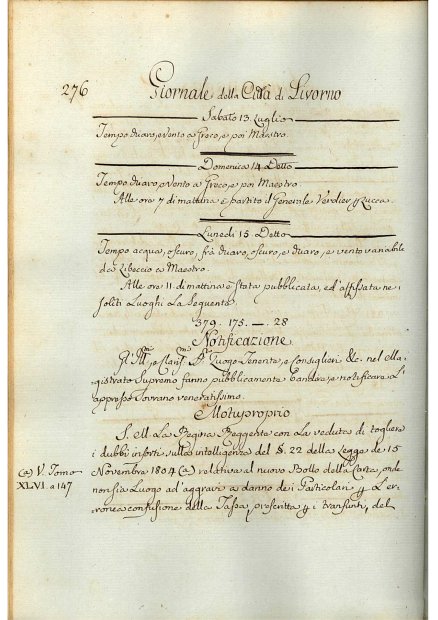 276
Giornale della Città di Livorno
Sabato 13. Luglio
Tempo Chiaro, e vento a Greco, e poi Maestro.
Domenica 14 Detto
Tempo Chiaro, e Vento a Greco, e poi Maestro
Alle ore 7 di mattina è partito il Generale Verdier p Lucca.
Lunedì 15 Detto
Tempo acqua, oscuro, frà Chiaro, oscuro, e Chiaro, e vento variabile
da Libeccio a Maestro.
Alle ore 11. di mattina è stata pubblicata, ed' affissata ne i
soliti Luoghi La Seguente
379. 175. — . 28
Notificazione
Luogo Tenente, e Consiglieri &c. nel Ma,
gistrato Supremo fanno pubblicamente bandire, e notificare L'
appresso Sovrano veneratissimo.
Motuproprio
S. M. La Regina Reggente con La veduta di togliere
i dubbi insorti, sulla intelligenza del §. 22 della Legge de 15
(a) V. Tomo
XLVI. a 147
Novembre 1804 (a) relativa al nuovo Bollo della Carta, onde
non sia Luogo ad' aggravi a danno dei Particolari p L'er,
ronea confusione della Tassa, prescritta p i transunti, del